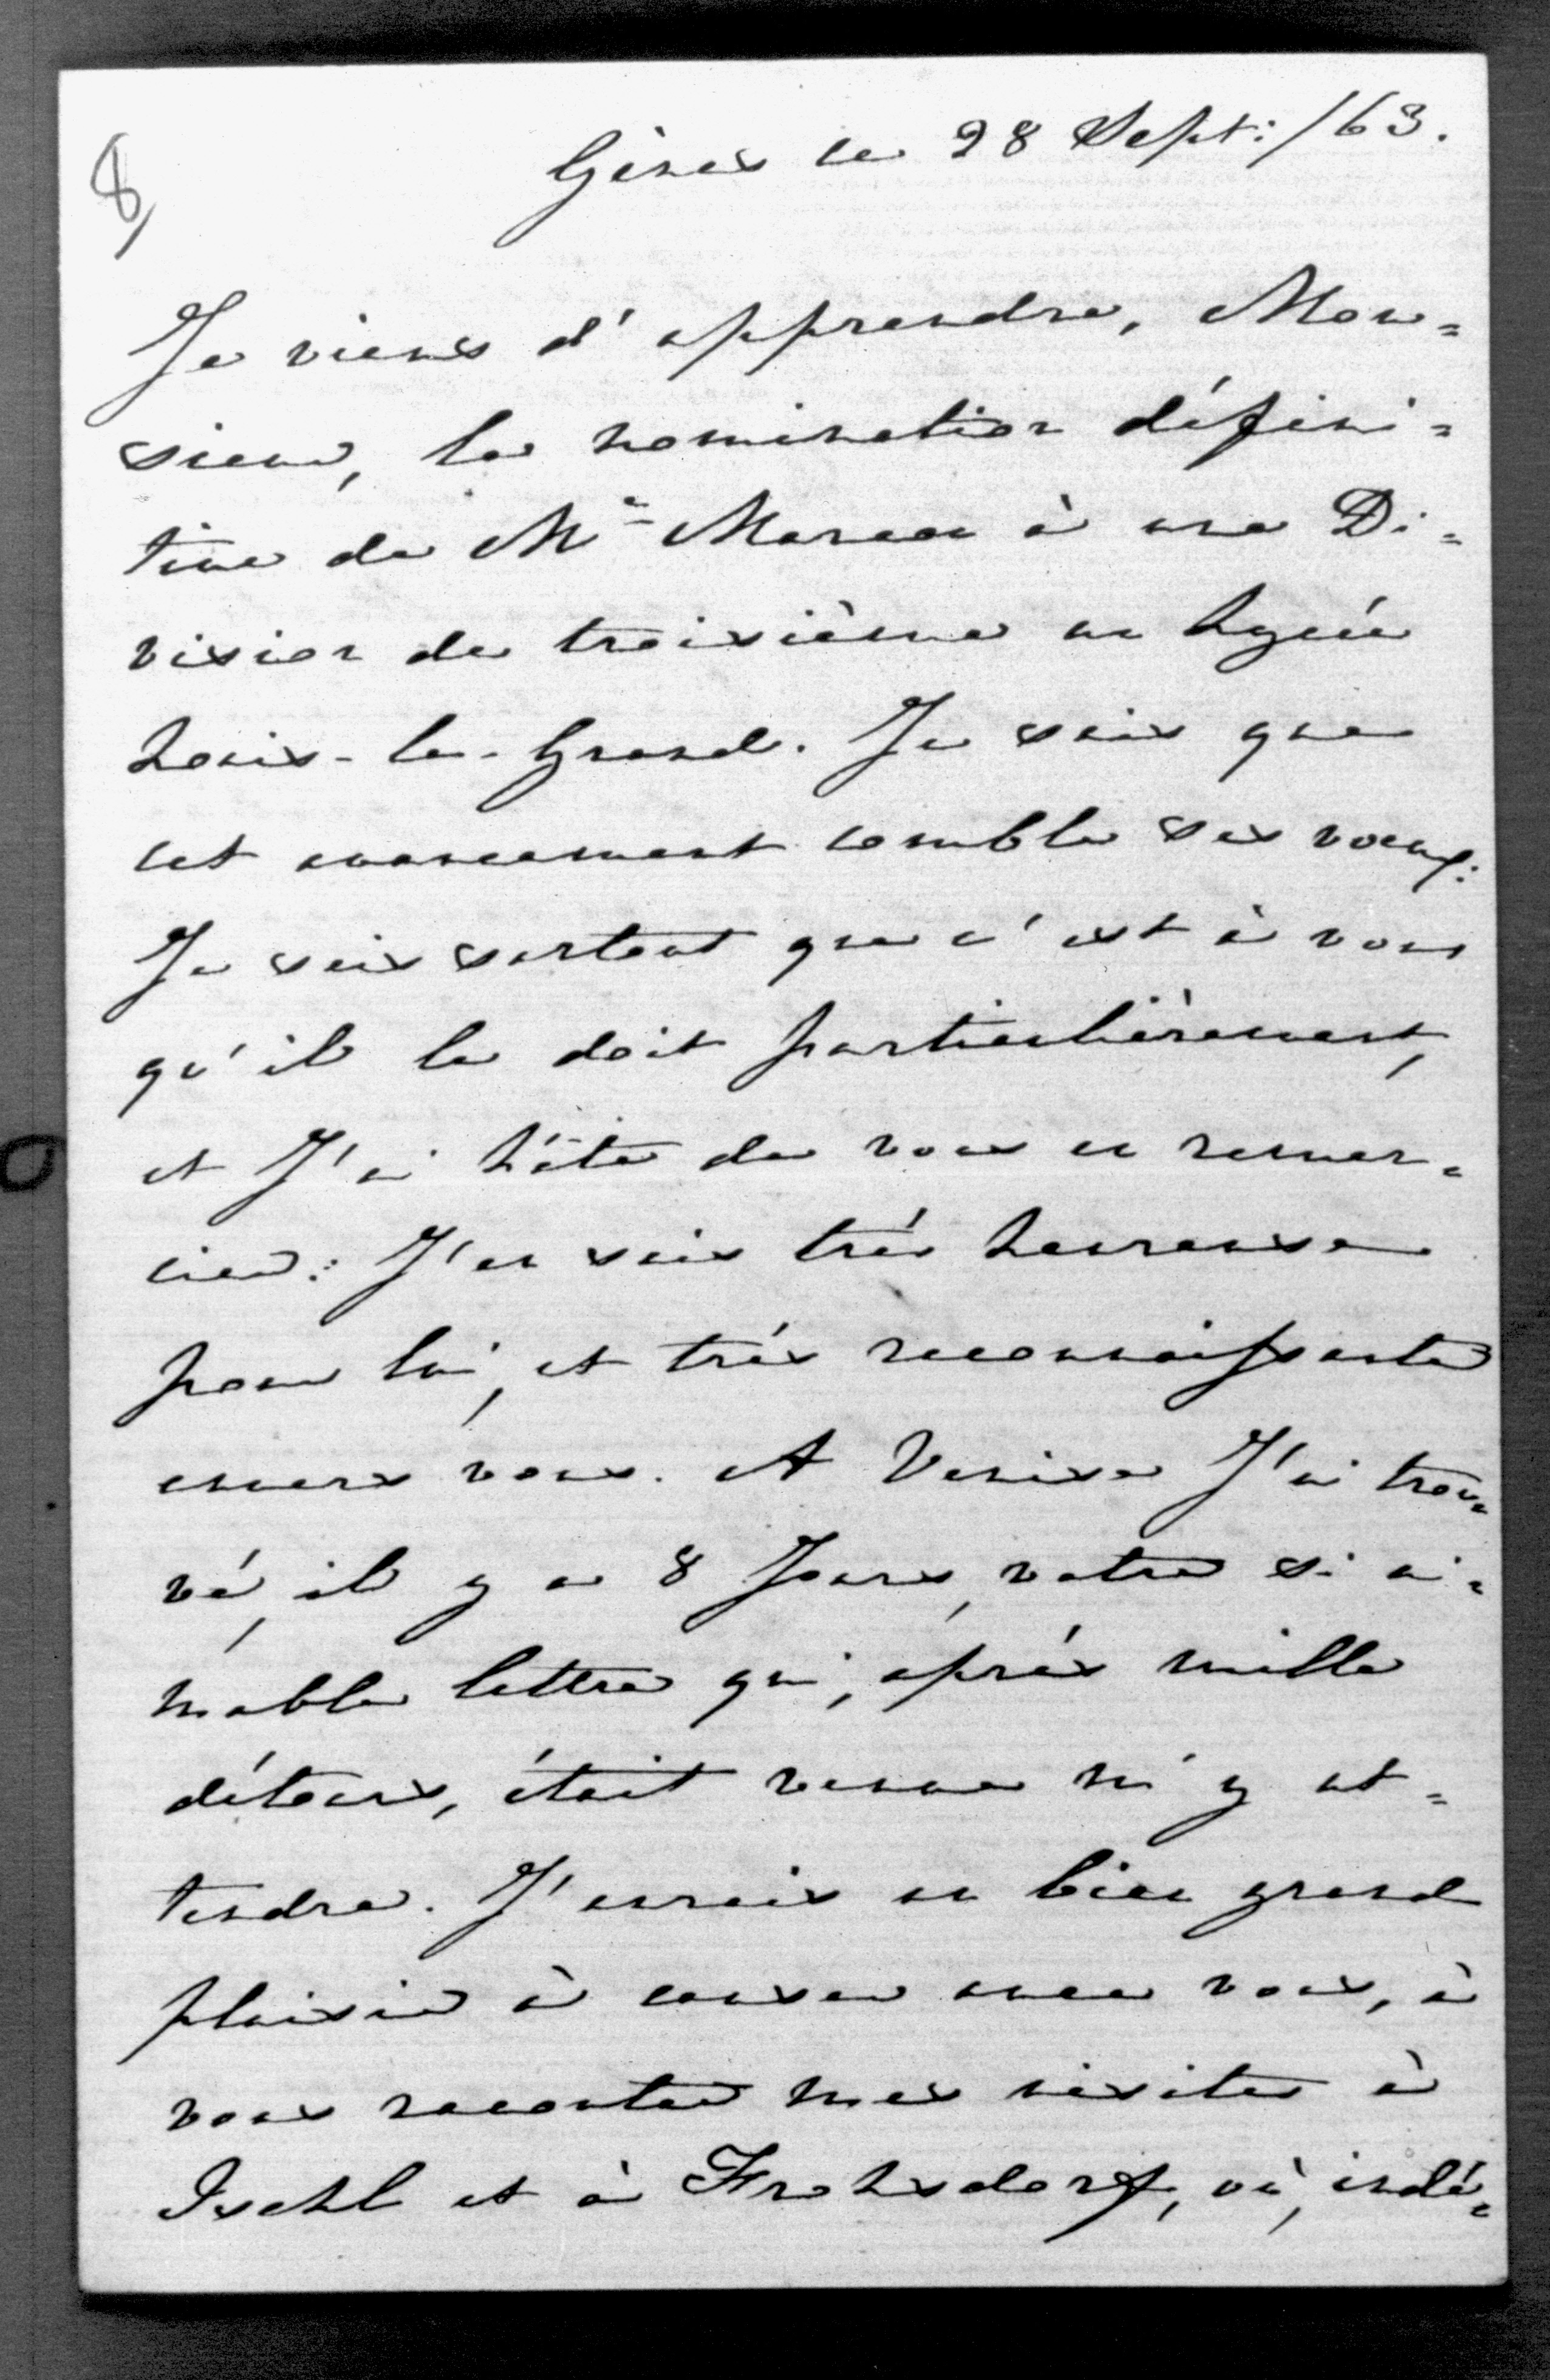 8,
Gênes le 28 Sept:/63.
Je viens d'apprendre, Mon=
sieur, la nomination défini=
tive de Mr Marcou à une Di=
vision de troisième au Lycée
Louis-le-Grand. Je sais que
cet avancement comble ses voeux:
Je sais surtout que c'est à vous
qu'il le doit particulièrement,
et J'ai hâte de vous en remer=
cier: J'en suis très heureuse
pour lui, et très reconnaissante
envers vous. A Venise J'ai trou=
vé, il y a 8 Jours, votre si ai=
mable lettre qui, après mille
détours, était venue m'y at=
tendre. J'aurais un bien grand
plaisir à causer avec vous, à
vous raconter mes visites à
Ischl et à Frohsdorf, où, indé=